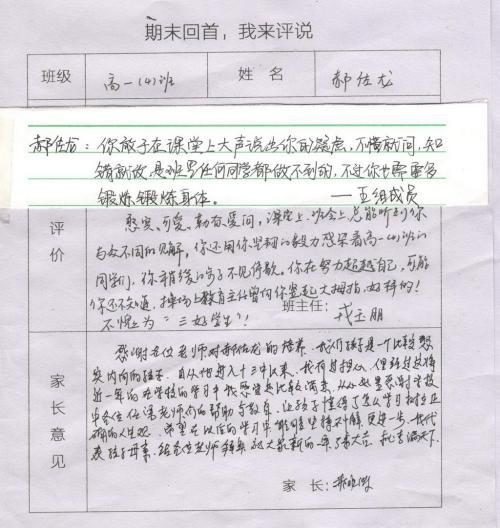 期末回首，我来评说
班级 高一(4)班 姓名 郝佐龙
郝佐龙：你敢于在课堂上大声说出你的疑虑，不懂就问，知
错就改，是班里任何同学都做不到的，不过你也需要多
锻炼锻炼身体。
——五组成员
评价
憨实、可爱、勤奋爱问，课堂上、班会上总能听到你
与众不同的见解，你还用你坚韧的毅力感染着高一(4)班的
同学们，你前进的步子不见停歇。你在努力超越自己，可能
你还不知道，操场上教育主任曾向你竖起大拇指，好样的！
不愧为“三好学生”！
班主任：
家长意见
感谢各位老师对郝佐龙的培养，我们孩子是一个比较憨
实内向的孩子，自从他进入十三中以来，我有过担心，但经过这将
近一年的在学校的学习中我感觉是比较满意，从心里感谢学校
和各位任课老师们的帮助与教育，让孩子懂得了怎么学习树立正
确的人生观，希望在以后的学习中能够坚持不懈更进一步，我代
表孩子母亲，给各位老师拜年 祝大家新的一年 桃李满天下。
家 长：